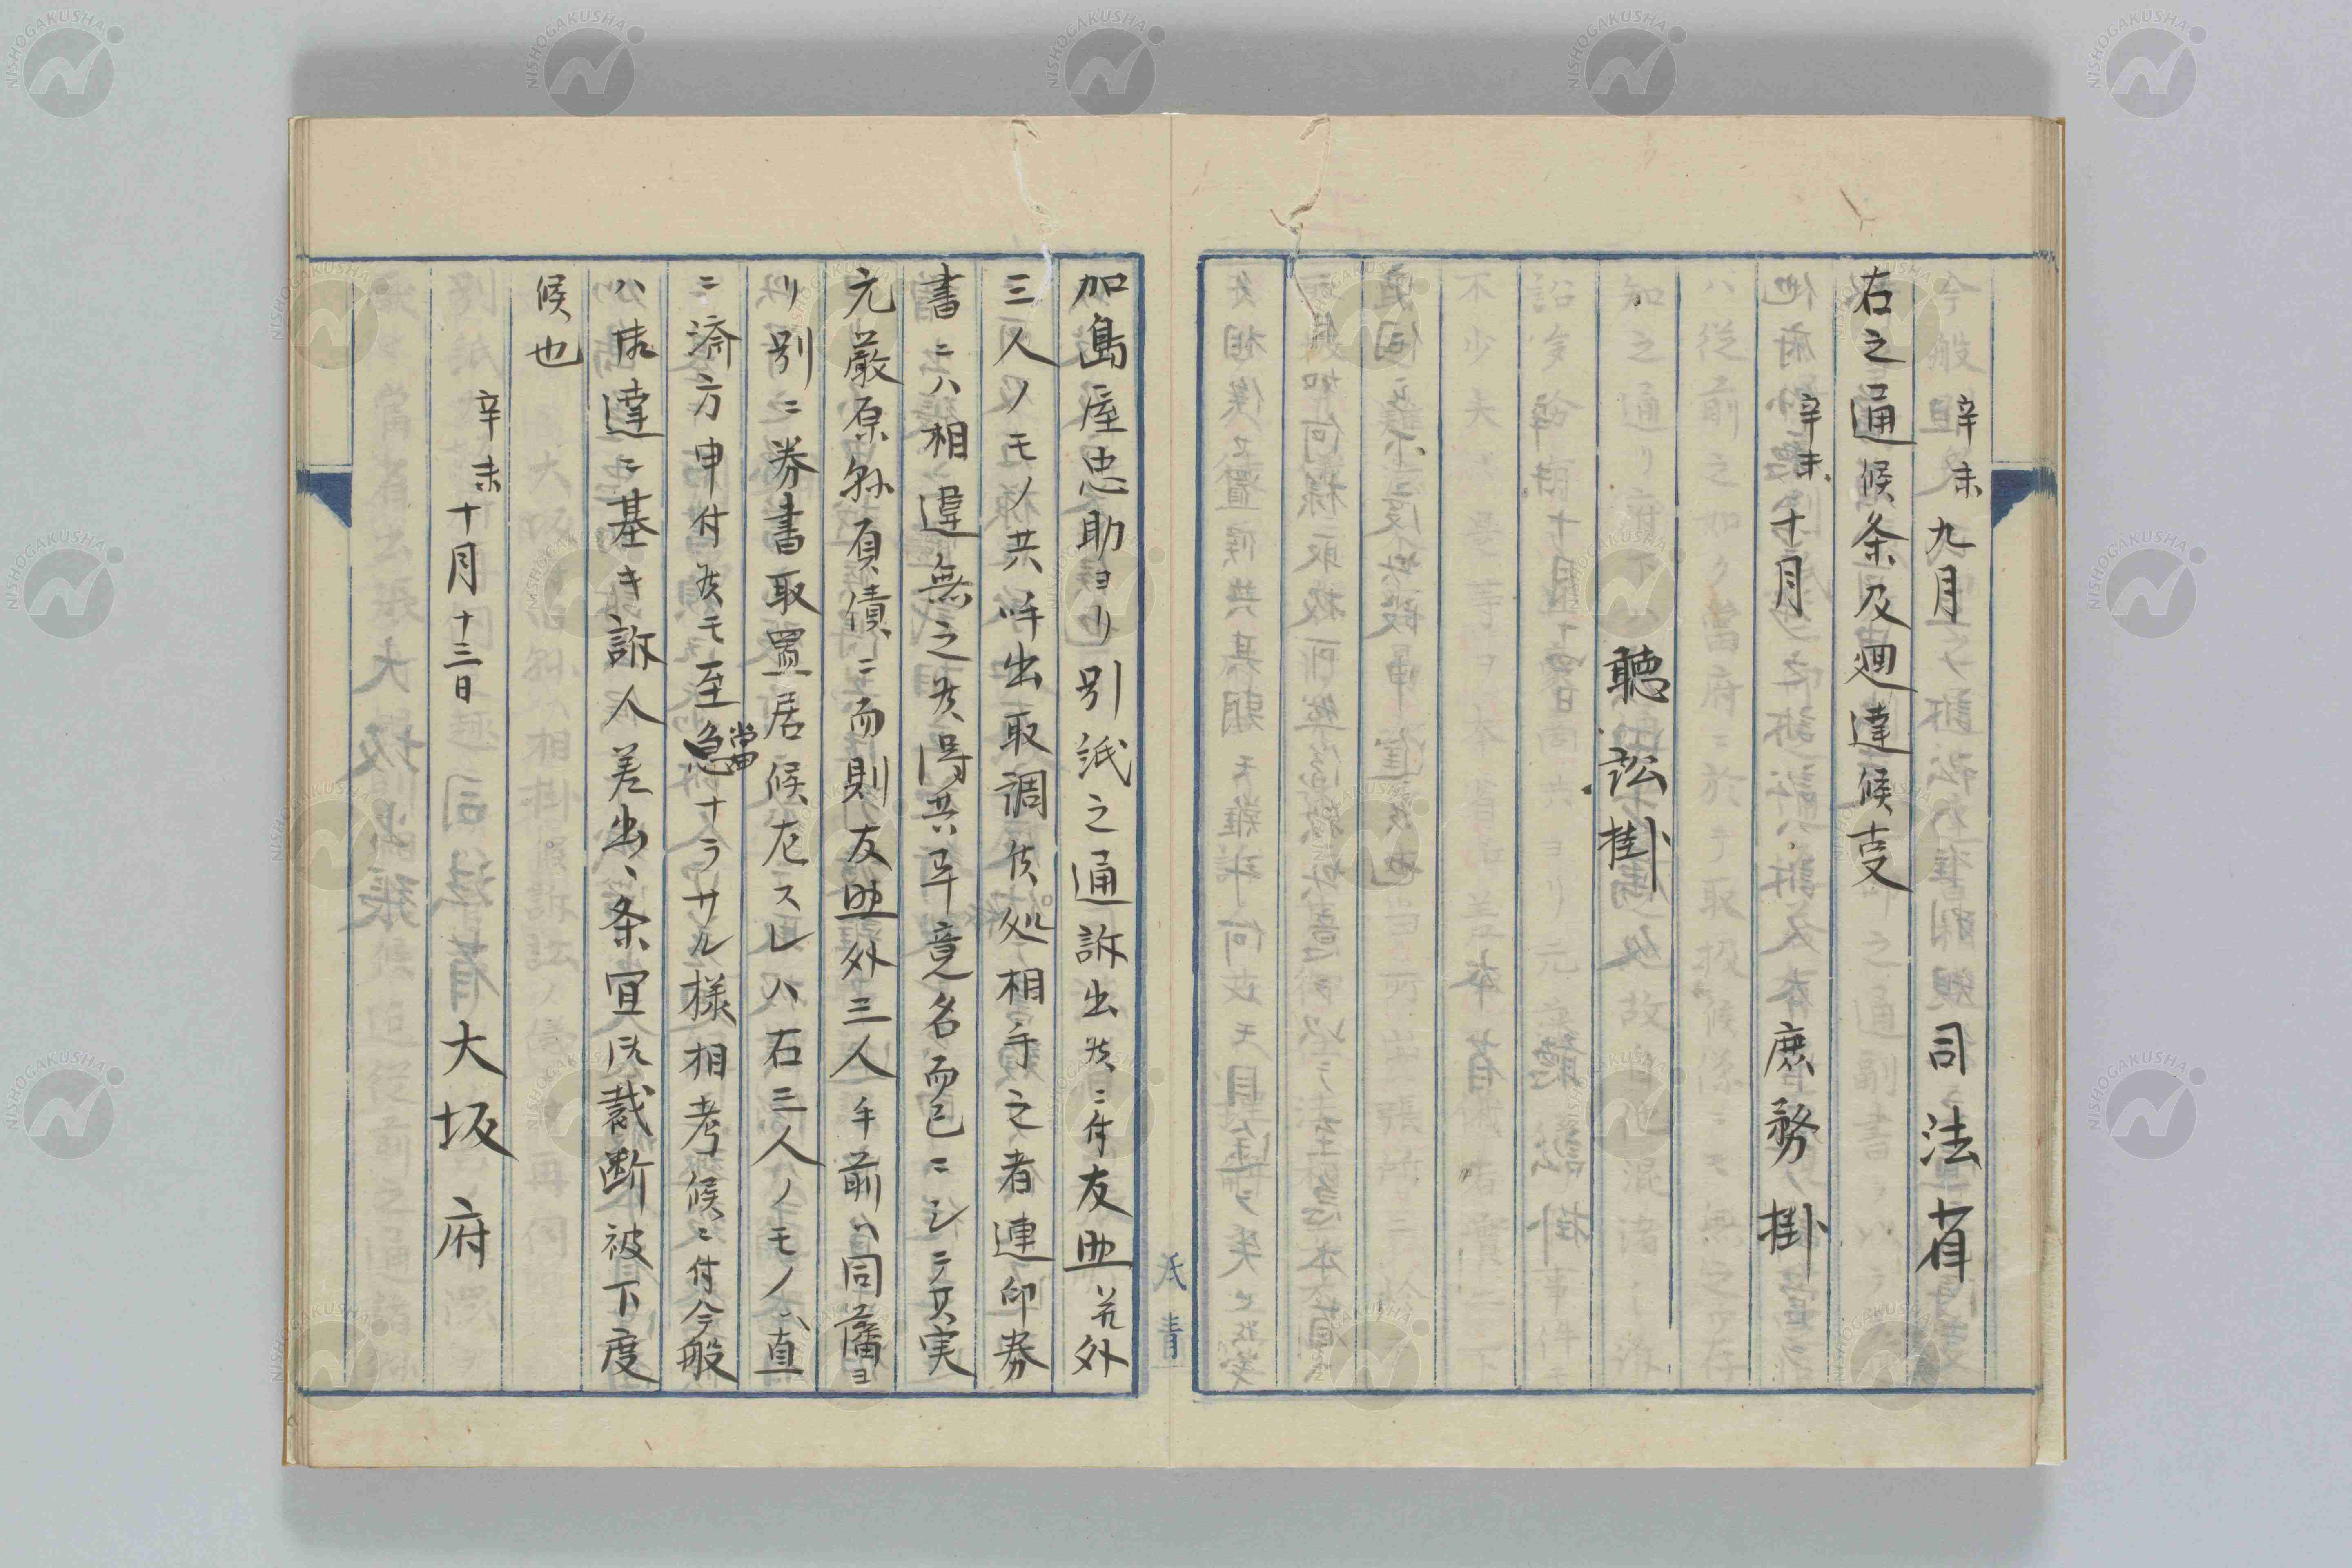 辛未九月 司法省
右之通候条及廻達候叓
辛未十月 庶務掛
聴訟掛
加島屋忠助ヨリ別紙之通訴出候ニ付友助并外
三人ノモノ共呼出取調候処相手之者連印券
書ニハ相違無之候得共畢竟名而已ニシテ其実
元厳原縣負債ニ而則友助外三人手前ハ同藩ヨ
リ別ニ券書取置居候尤スレハ右三人ノモノヘ直
ニ済方申付候モ至當急ナラサル様相考候ニ付今般
ハ達ニ基キ訴人差出、条宜御裁断被下度
候也
辛未十月十三日 大坂府
NISHOGAKUSHA